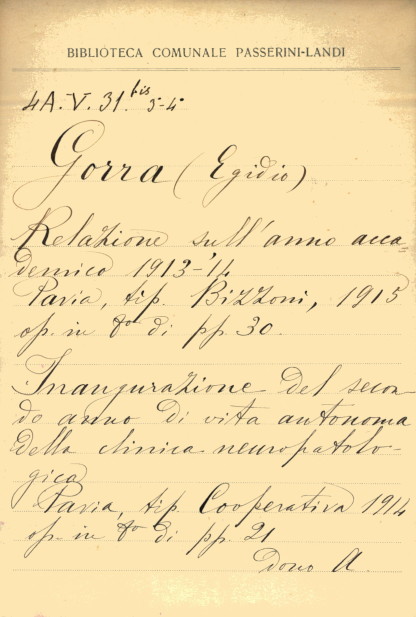 BIBLIOTECA COMUNALE PASSERINI-LANDI
4A.V.31.bis 3-4°
Gorra (Egidio)
Relazione sull'anno acca=
demico 1913-'14
Pavia, tip. Bizzoni, 1915
op. in 8° di pp. 30.
Inaugurazione del secon
do anno di vita autonoma
della clinica neuropatolo-
gica
Pavia, tip. Cooperativa 1914
op. in 8° di pp. 21
Dono A.